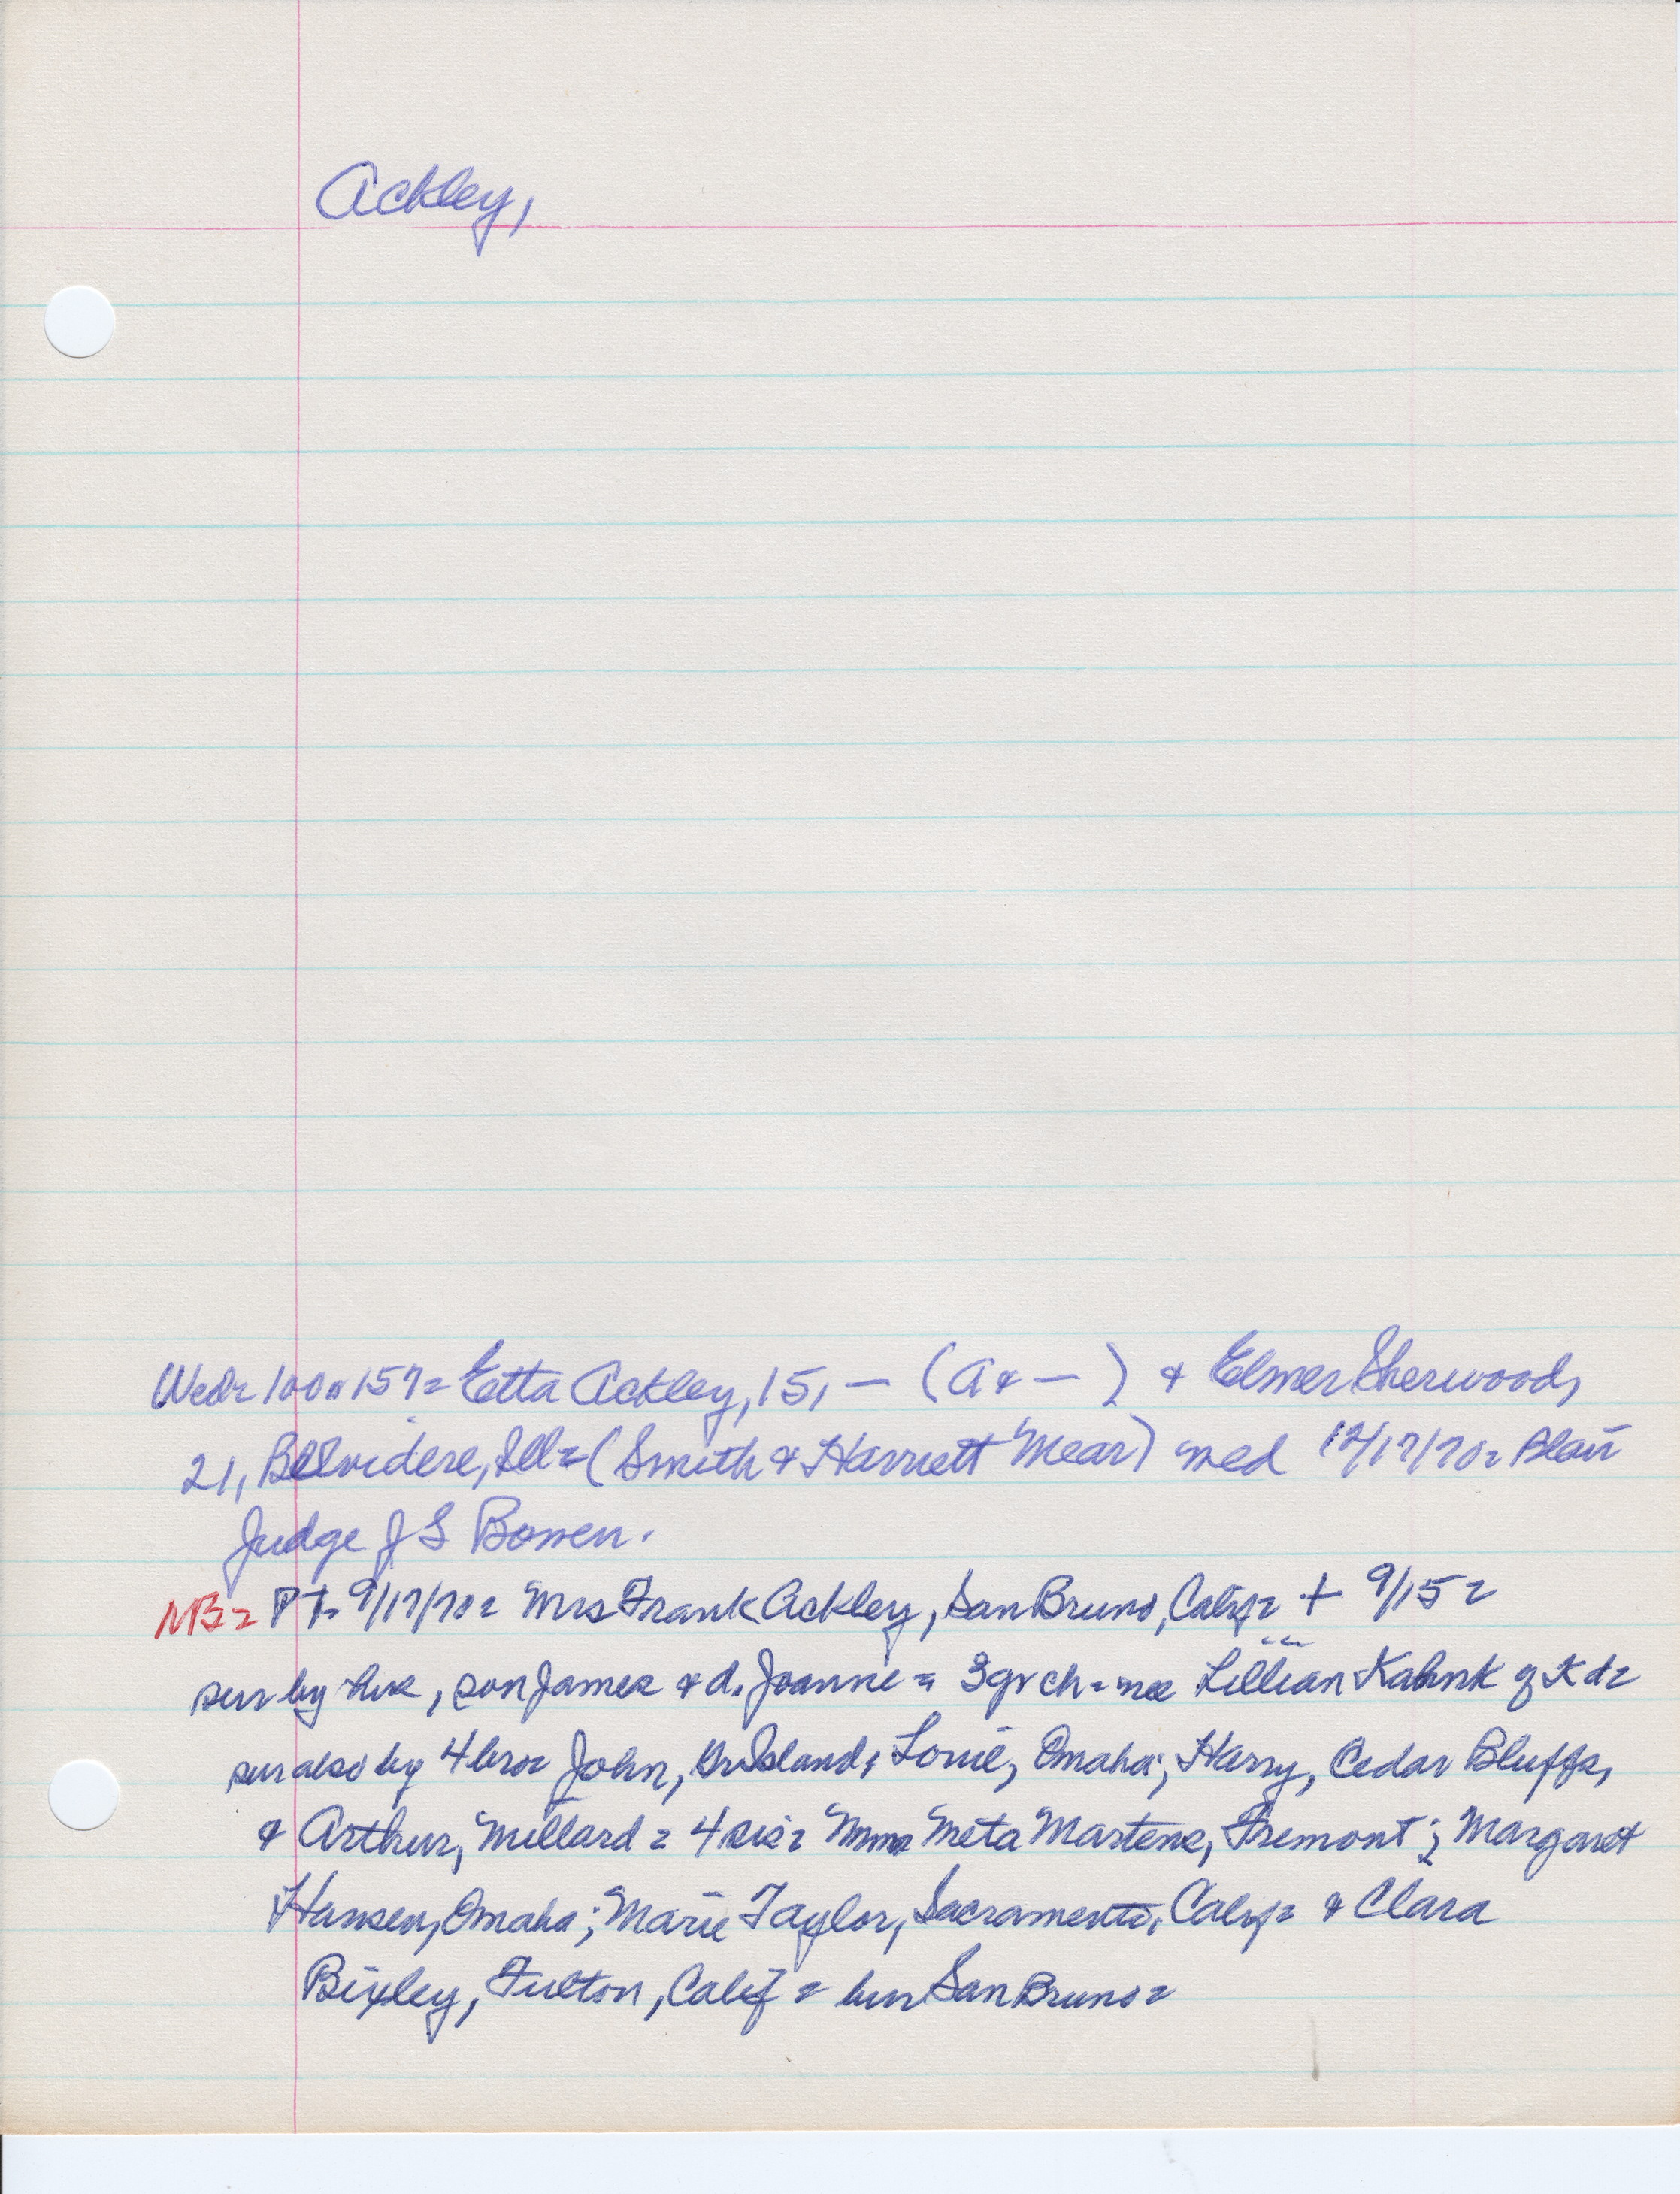 Ackley,
Wedr 100 #157= Etta Ackley, 15, — (A & —) & Elmer Sherwood,
21, Belvidere, Ill = (Smith & Harriett Mear) med 12/17/70= Blair
Judge J S Bowen.
NB= PT= 9/17/70= Mrs Frank Ackley, San Bruno, Calif= + 9/15=
sur by hus, son James & d. Joanne = 3 gr ch = nee Lillian Kahnk of Kd=
sur also by 4 bro= John, Gr Island; Louie, Omaha; Harry, Cedar Bluffs,
& Arthur, Millard = 4 sis= Mmes Meta Martens, Fremont; Margaret
Hansen, Omaha; Marie Taylor, Sacramento, Calif= & Clara
Bixley, Fulton, Calif = bur San Bruno=